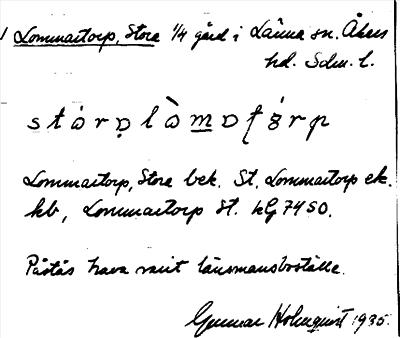 Lommartorp, Stora 1/4 gård i Länna sn. Åkers
hd. Sdm. l.
Lommartorp, Stora bek. St. Lommartorp ek.
kb, Lommartorp St. hG 74 SO.
Påstås hava varit länsmansboställe.
Gunnar Holmquist 1935.